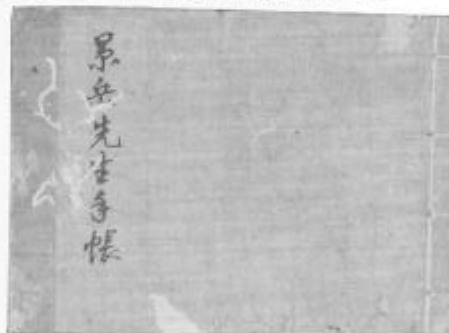 景岳先生手帳